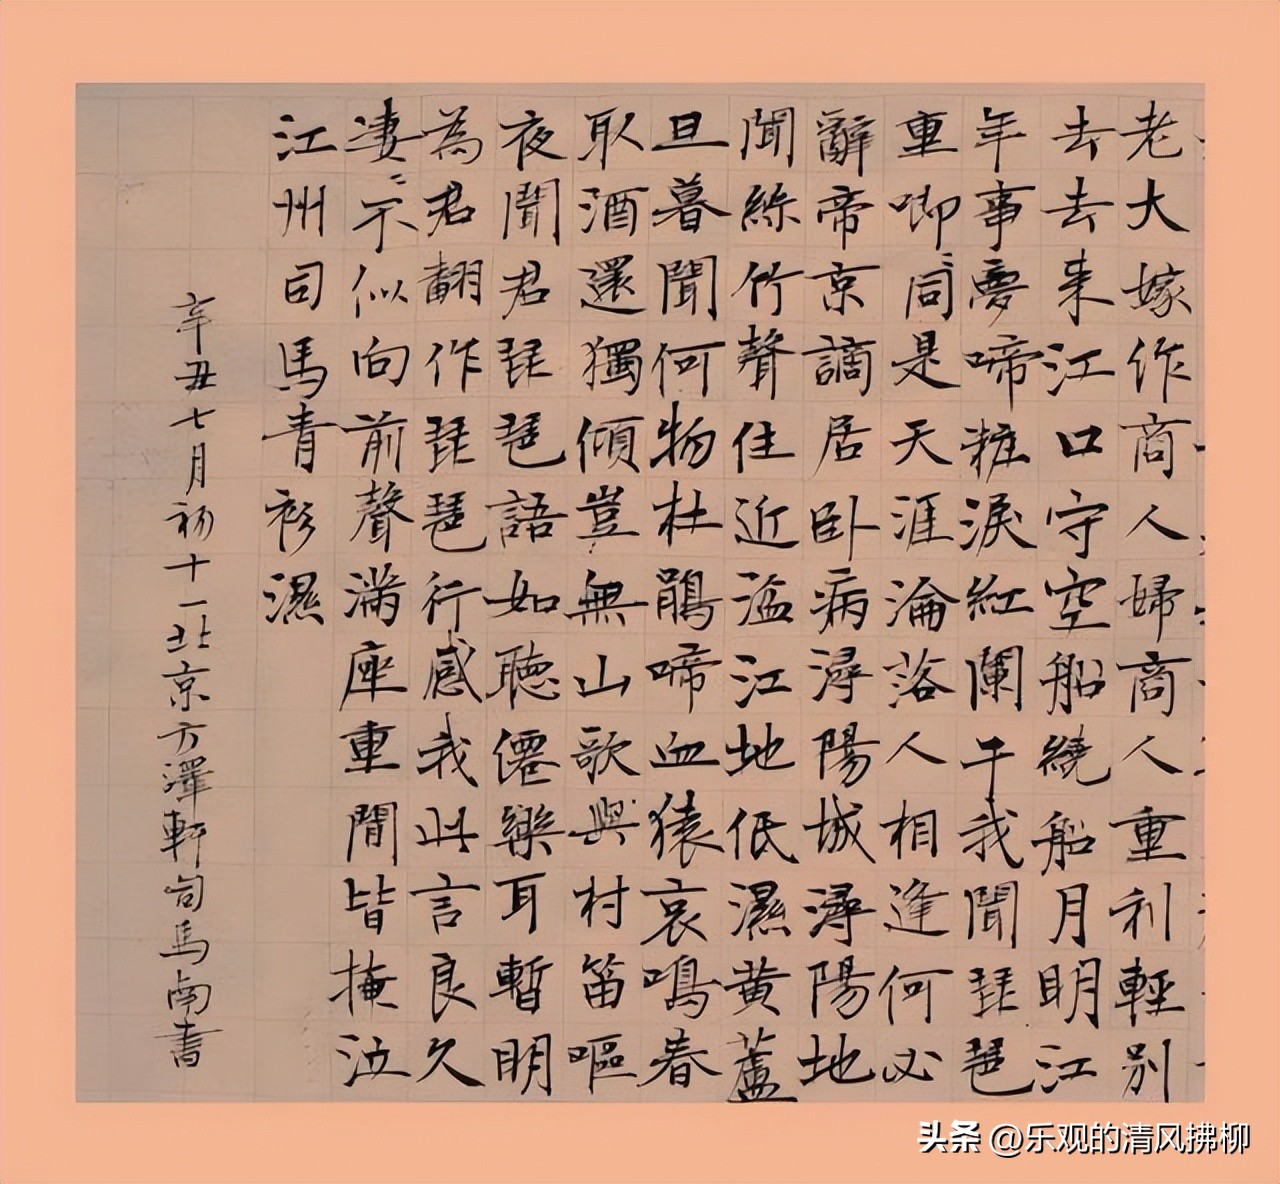 老大嫁作商人婦商人重利輕別
去去来江口守空船繞船月明江
年事夢啼粧淚紅闌干我聞琵琶
重唧〻同是天涯淪落人相逢何必
辭帝京謫居卧病潯陽城潯陽地
聞絲竹聲住近湓江地低濕黄蘆
旦暮聞何物杜鵑啼血猿哀鳴春
取酒還獨傾豈無山歌與村笛嘔
夜聞君琵琶語如聽僊樂耳暫明
為君翻作琵琶行感我此言良久
凄〻不似向前聲滿座重間皆掩泣
江州司馬青衫濕
辛丑七月初十一北京方澤軒司馬南書
头条 @乐观的清风拂柳